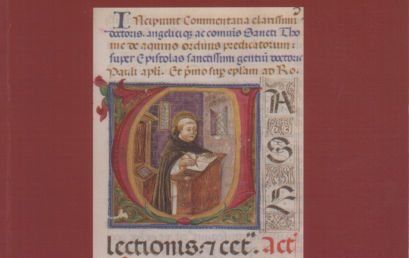 Incipiunt Commentaria clarissimi
doctoris angelici qz ac comunis Sancti Tho
me de aquino ordinis predicatorum:
super Epistolas sanctissimi gentiũ doctoris
Pauli apli. Et pͥmo suꝑ eplam ad Ro.
V
A
S
E
lectionis: ⁊ cet̃. Act